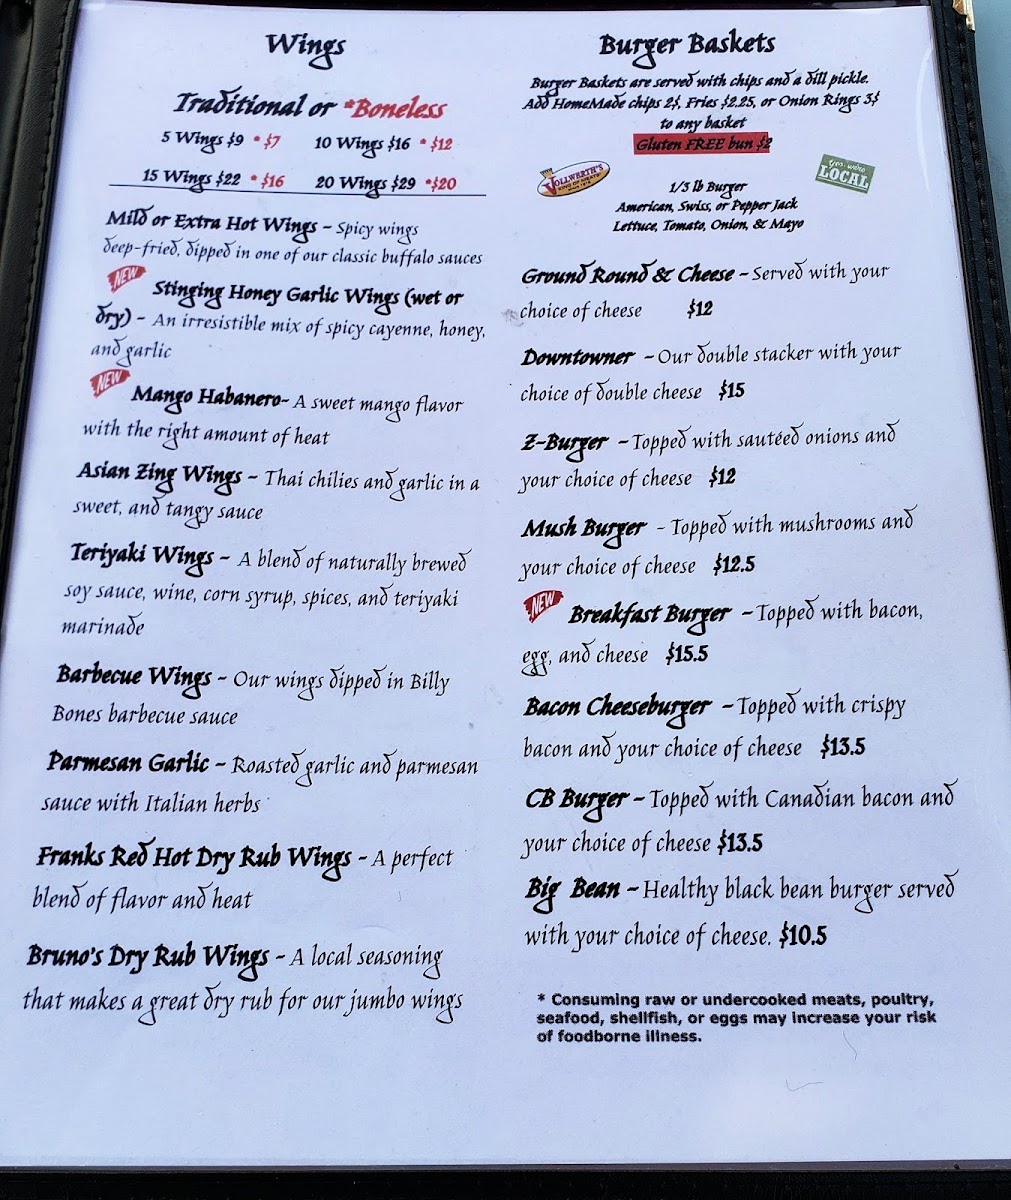 Wings
Traditional or *Boneless
5 Wings $9 * $7 10 Wings $16 * $12
15 Wings $22 * $16 20 Wings $29 *$20
Mild or Extra Hot Wings ~ Spicy wings
deep-fried, dipped in one of our classic buffalo sauces
NEW
Stinging Honey Garlic Wings (wet or
dry) ~ An irresistible mix of spicy cayenne, honey,
and garlic
NEW
Mango Habanero~ A sweet mango flavor
with the right amount of heat
Asian Zing Wings ~ Thai chilies and garlic in a
sweet, and tangy sauce
Teriyaki Wings ~ A blend of naturally brewed
soy sauce, wine, corn syrup, spices, and teriyaki
marinade
Barbecue Wings ~ Our wings dipped in Billy
Bones barbecue sauce
Parmesan Garlic ~ Roasted garlic and parmesan
sauce with Italian herbs
Franks Red Hot Dry Rub Wings ~ A perfect
blend of flavor and heat
Bruno's Dry Rub Wings ~ A local seasoning
that makes a great dry rub for our jumbo wings
Burger Baskets
Burger Baskets are served with chips and a dill pickle.
Add HomeMade chips 2$, Fries $2.25, or Onion Rings 3$
to any basket
Gluten FREE bun $2
VOLLWERTH'S
KING OF MEATS
LOCAL
1/3 lb Burger
American, Swiss, or Pepper Jack
Lettuce, Tomato, Onion, & Mayo
Ground Round & Cheese ~ Served with your
choice of cheese $12
Downtowner ~ Our double stacker with your
choice of double cheese $15
Z-Burger ~ Topped with sautéed onions and
your choice of cheese $12
Mush Burger - Topped with mushrooms and
your choice of cheese $12.5
NEW
Breakfast Burger ~ Topped with bacon,
egg, and cheese $15.5
Bacon Cheeseburger ~ Topped with crispy
bacon and your choice of cheese $13.5
CB Burger ~ Topped with Canadian bacon and
your choice of cheese $13.5
Big Bean ~ Healthy black bean burger served
with your choice of cheese. $10.5
* Consuming raw or undercooked meats, poultry,
seafood, shellfish, or eggs may increase your risk
of foodborne illness.